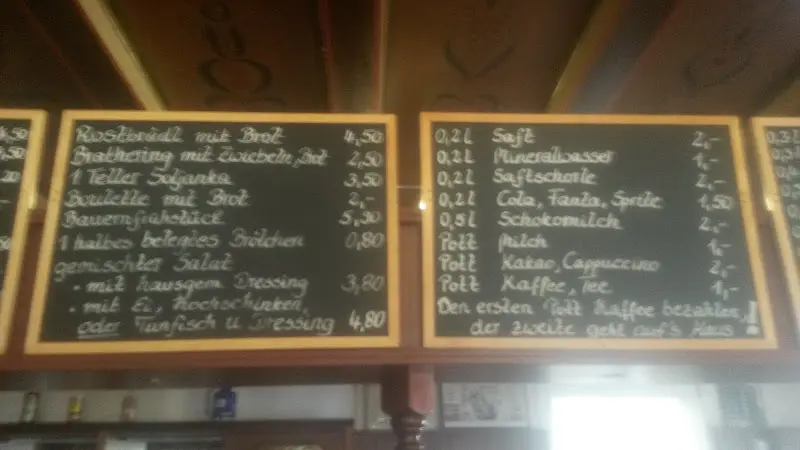 4,50
Rostbrädl mit Brot 4,50
Brathering mit Zwiebeln, Brot 2,50
1 Teller Soljanka 3,50
Boulette mit Brot 2,-
Bauernfrühstück 5,30
1 halbes belegtes Brötchen 0,80
gemischter Salat
- mit hausgem Dressing 3,80
- mit Ei, Kochschinken,
oder Tunfisch u Dressing 4,80
0,2l Saft 2,-
0,2l Mineralwasser 1,-
0,2l Saftschorle 2,-
0,2l Cola, Fanta, Sprite 1,50
0,5l Schokomilch 2,-
Pott Milch 1,-
Pott Kakao, Cappuccino 2,-
Pott Kaffee, Tee 1,-
Den ersten Pott Kaffee bezahlen,
der zweite geht auf's Haus!